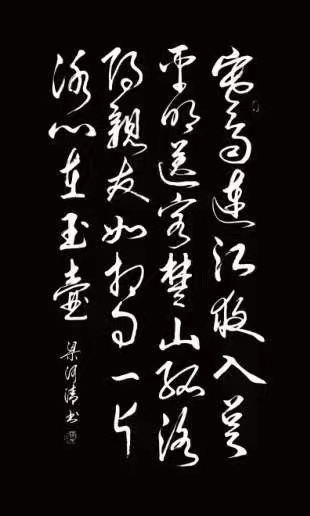 寒雨連江夜入吴
平明送客楚山孤洛
陽親友如相問一片
冰心在玉壺
梁河清书